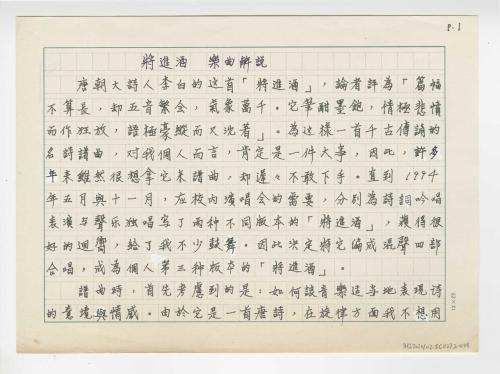 P.1
將進酒　樂曲解說
唐朝大詩人李白的這首「將進酒」，論者評為「篇幅
不算長，却五音繁會，氣象萬千。它筆酣墨飽，情極悲憤
而作狂放，語極豪縱而又沈著」。為这樣一首千古傳誦的
名詩譜曲，对我個人而言，肯定是一件大事，因此，許多
年來雖然很想拿它來譜曲，却遲々不敢下手。直到1994
年五月與十一月，在校內演唱会的需要，分别為詩詞吟唱
表演与聲乐独唱写了兩种不同版本的「將進酒」，獲得很
好的迴響，給了我不少鼓舞。因此決定將它編成混聲四部
合唱，成為個人第三种版本的「將進酒」。
譜曲時，首先考慮到的是：如何該音樂适当地表現诗
的意境與情感。由於它是一首唐詩，在旋律方面我不想用